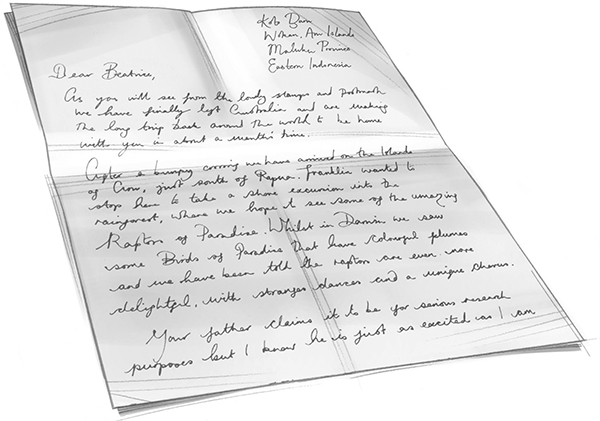 Kota Baru
Wokam, Aru Islands
Maluku Province
Eastern Indonesia
Dear Beatrice,
As you will see from the lovely stamps and postmark
we have finally left Australia and are making
the long trip back around the world to be home
with you in about a month's time.
After a bumpy crossing we have arrived on the Islands
of Crow, just south of Papua. Franklin wanted to
stop here to take a short excursion into the
rainforest, where we hope to see some of the amazing
Raptors of Paradise. Whilst in Darwin we saw
some Birds of Paradise that have colourful plumes
and we have been told the raptors are even more
delightful, with stranger dances and a unique chorus.
Your father claims it to be for serious research
purposes but I know he is just as excited as I am